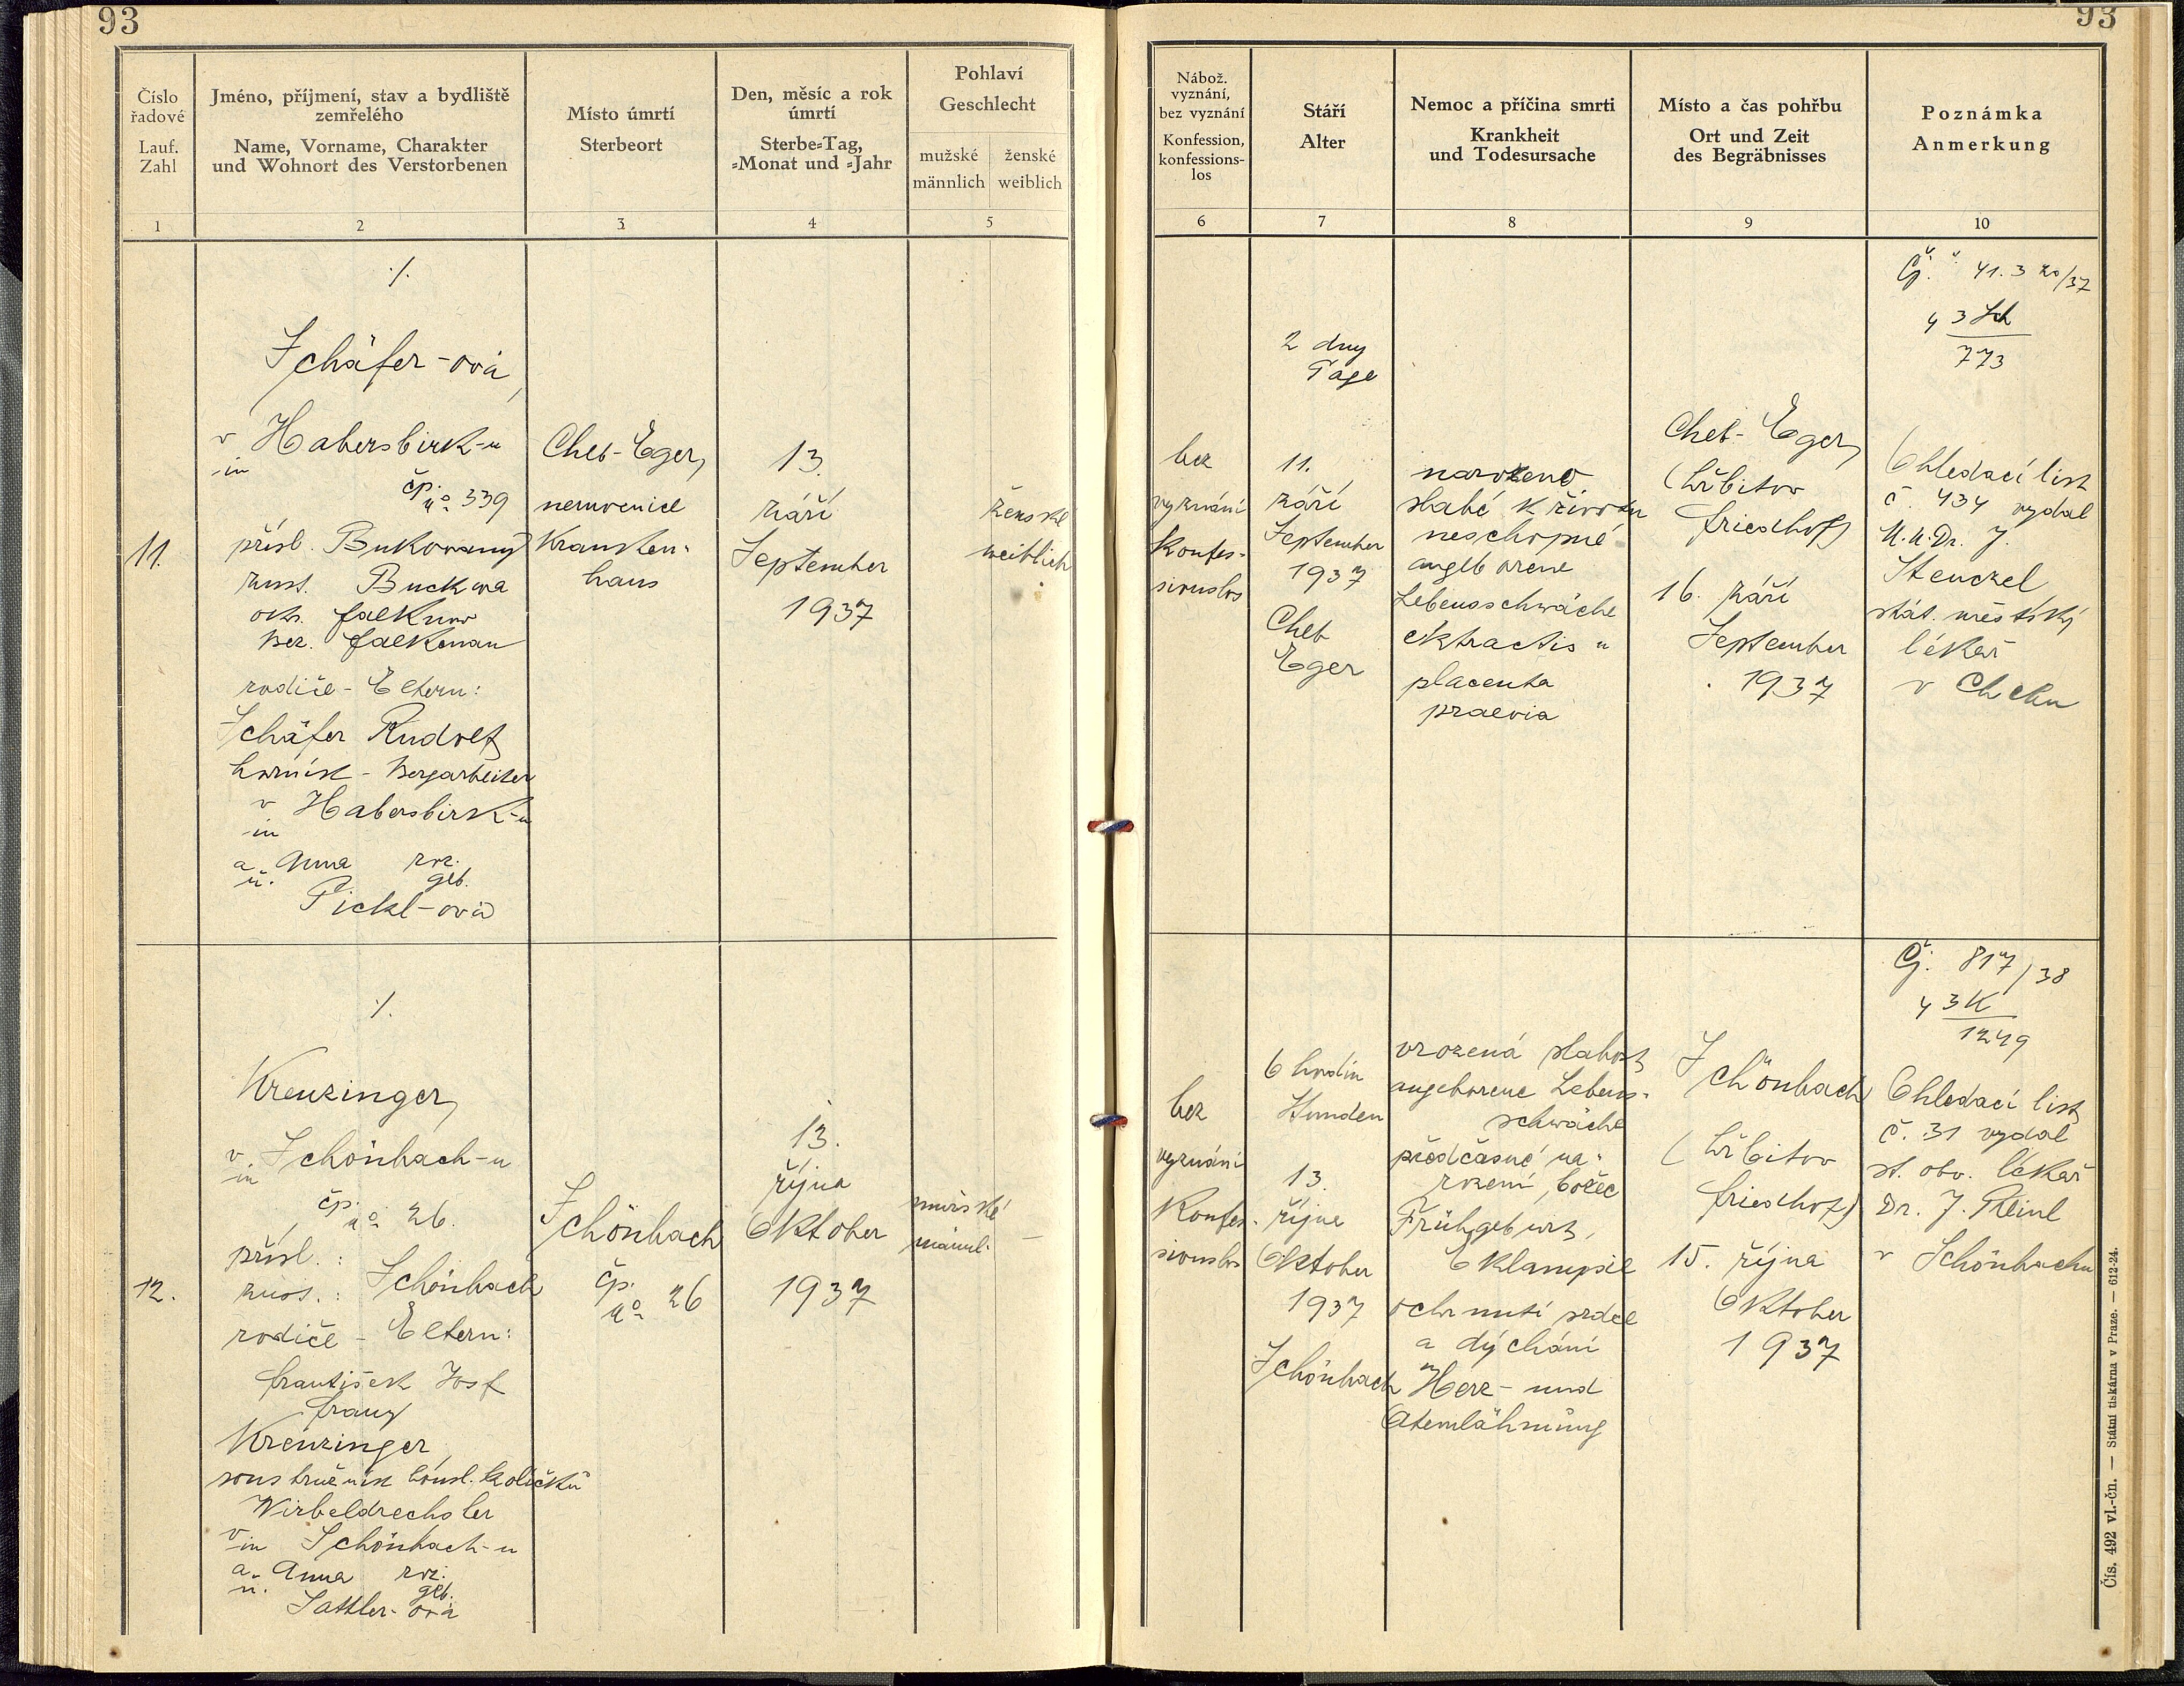 93
93
Číslo
řadové
Lauf.
Zahl
Jméno, příjmení, stav a bydliště
zemřelého
Name, Vorname, Charakter
und Wohnort des Verstorbenen
Místo úmrtí
Sterbeort
Den, měsíc a rok
úmrtí
Sterbe=Tag,
=Monat und =Jahr
Pohlaví
Geschlecht
mužské
männlich
ženské
weiblich
Nábož.
vyznání,
bez vyznání
Konfession,
konfessions-
los
Stáří
Alter
Nemoc a příčina smrti
Krankheit
und Todesursache
Místo a čas pohřbu
Ort und Zeit
des Begräbnisses
Poznámka
Anmerkung
1
2
3
4
5
6
7
8
9
10
11.
./.
Schäfer-ová,
v Habersbirk-u
in
čp. 339
nº
přísl. Bukovany
zust. Buckwa
okr. Falknov
Bez. Falkenau
rodiče - Eltern:
Schäfer Rudolf
horník - Bergarbeiter
v Habersbirk-u
in
a Anna roz.
u. geb.
Pickl-ová
Cheb-Eger,
nemocnice
Kranken-
haus
13.
září
September
1937
ženské
weiblich
bez
vyznání
Konfes-
sionslos
2 dny
Tage
11.
září
September
1937
Cheb
Eger
narozeno
slabé k životu
neschopné
angeborene
Lebensschwäche
extractis
placenta
praevia
Cheb-Eger,
(hřbitov
Friedhof)
16. září
September
1937
Čj. 41.320/37
43 Sch
773
Ohledací list
č. 434 vydal
M.U.Dr. J.
Stenczel
stát. městský
lékař
v Chebu
12.
./.
Kreuzinger,
v Schönbach-u
in
čp. 26.
nº
přísl. :
zust. : Schönbach
rodiče - Eltern:
František Josf
Franz
Kreuzinger
soustružník housl. kolíčků
Wirbeldrechsler
v in Schönbach-u
a Anna roz.
u. geb.
Sattler-ová
Schönbach
čp. 26
nº
13.
října
Oktober
1937
mužské
männl.
—
bez
vyznání
Konfes-
sionslos
6 hodin
Stunden
13.
října
Oktober
1937
Schönbach
vrozená slabost
angeborene Lebens-
schwäche
předčasné na-
rození,
Frühgeburt,
Eklampsie
ochrnutí srdce
a dýchání
Herz- und
Atemlähmung
Schönbach
(hřbitov
Friedhof)
15. října
Oktober
1937
Čj. 817/38
43K
1249
Ohledací list
č. 31 vydal
st. obv. lékař
Dr. J. Kleinl
v Schönbachu
Čís. 492 vl.-čn. — Státní tiskárna v Praze. — 612-24.